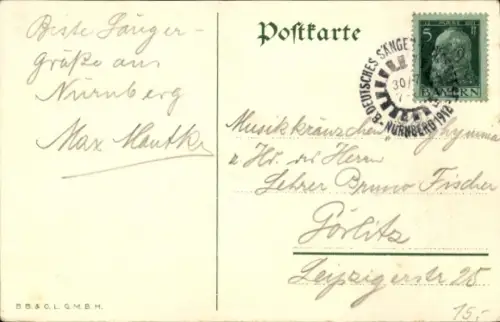 Beste Sänger-
Grüße aus
Nürnberg
Max
Postkarte
8. DEUTSCHES SÄNGER
NÜRNBERG 1912
30
5
5
BAYERN
Musikkränzchen
Hd. des Herrn
Lehrer Bruno Fischer
Görlitz
Leipzigerstr 25
B.B. & O. L. G.M.B.H.
15,-